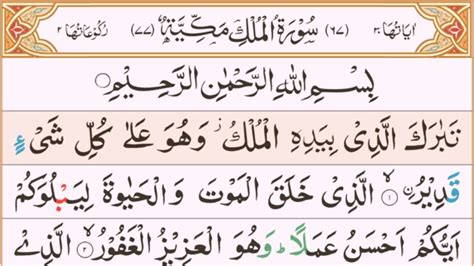 اٰیاتھا ۳۰ (۶۷) سُوْرَۃُ الْمُلْکِ مَکِّیَّۃٌ (۷۷) رُکُوْعَاتُھَا ۲
بِسْمِ اللّٰهِ الرَّحْمٰنِ الرَّحِیْمِ
تَبٰرَكَ الَّذِیْ بِیَدِهِ الْمُلْكُ ؗ وَهُوَ عَلٰی كُلِّ شَیْءٍ
قَدِیْرُ ۙ﴿۱﴾ الَّذِیْ خَلَقَ الْمَوْتَ وَالْحَیٰوةَ لِیَبْلُوَكُمْ
اَیُّكُمْ اَحْسَنُ عَمَلًا ؕ وَهُوَ الْعَزِیْزُ الْغَفُوْرُ ۙ﴿۲﴾ الَّذِیْ